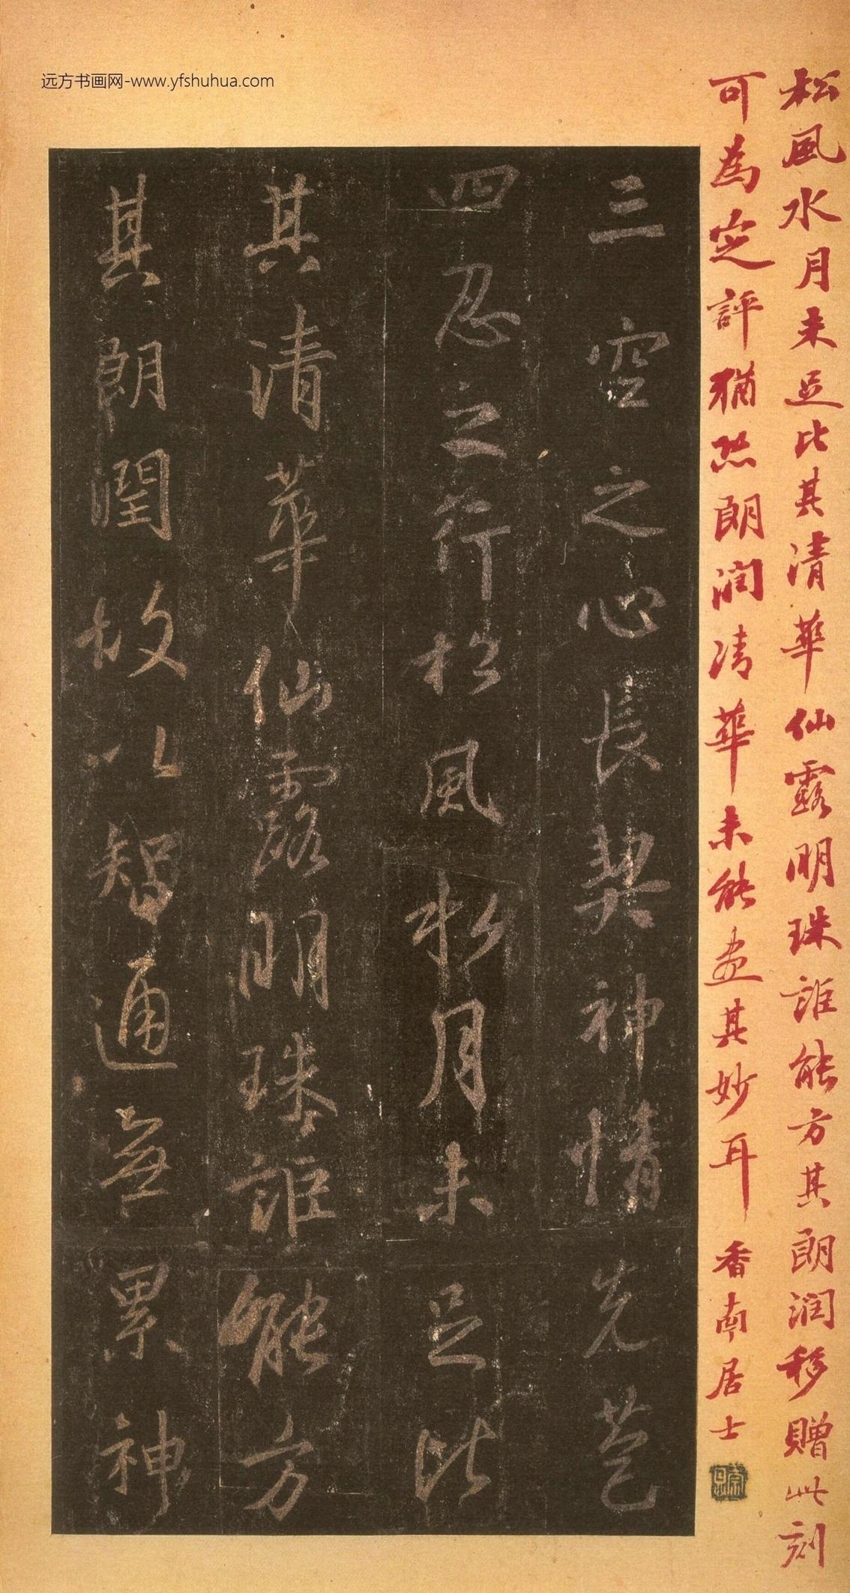 远方书画网-www.yfshuhua.com
松風水月未足比其清華仙露明珠詎能方其朗潤移贈此刻
可為定評猶恐朗潤清華未能盡其妙耳 香南居士
三空之心長契神情先苞
四忍之行松風松月未足比
其清華仙露明珠詎能方
其朗潤故以智通無累神